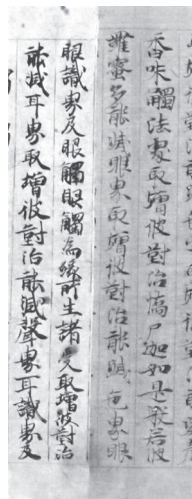 香味觸法處取增彼對治憍尸迦如是般若波
羅蜜多能減眼界取增彼對治能減色界眼
眼識界及眼觸眼觸為緣所生諸受取增彼對治
能減耳界取增彼對治能減聲界耳識界及